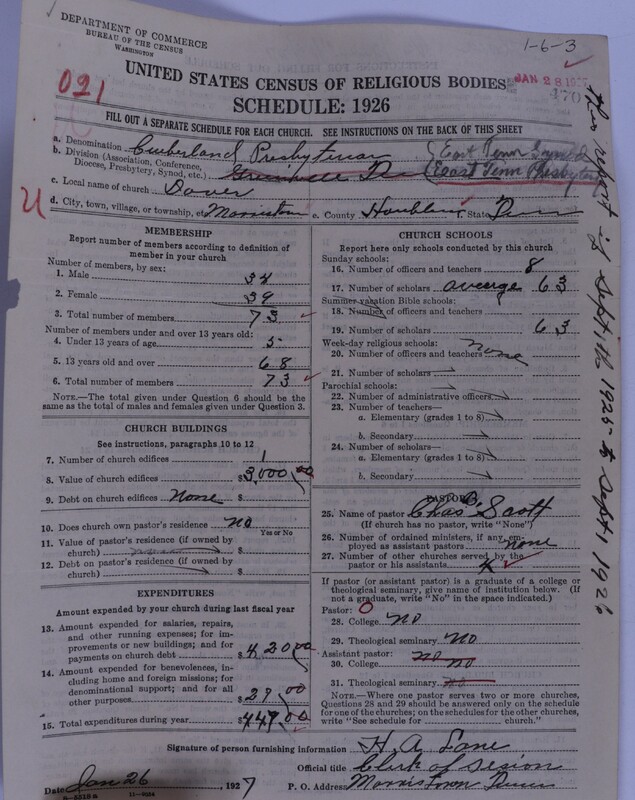 DEPARTMENT OF COMMERCE
BUREAU OF THE CENSUS
WASHINGTON
1-6-3
UNITED STATES CENSUS OF RELIGIOUS BODIES
JAN 28 1927
SCHEDULE: 1926
470
021
FILL OUT A SEPARATE SCHEDULE FOR EACH CHURCH. SEE INSTRUCTIONS ON THE BACK OF THIS SHEET
a. Denomination Cumberland Presbyterian (East Tenn Synod
b. Division (Association, Conference, Diocese, Presbytery, Synod, etc.) (East Tenn Presbytery
c. Local name of church Dover
U
d. City, town, village, or township, etc. Morristown e. County Hamblen State Tenn
this report is Sept 1th 1925 to Sept 1 1926
MEMBERSHIP
Report number of members according to definition of
member in your church
Number of members, by sex:
1. Male 34
2. Female 39
3. Total number of members 73
Number of members under and over 13 years old:
4. Under 13 years of age 5
5. 13 years old and over 68
6. Total number of members 73
NOTE.—The total given under Question 6 should be the
same as the total of males and females given under Question 3.
CHURCH BUILDINGS
See instructions, paragraphs 10 to 12
7. Number of church edifices 1
8. Value of church edifices $3,000 00
9. Debt on church edifices None $
10. Does church own pastor's residence? no
Yes or No
11. Value of pastor's residence (if owned by
church) $
12. Debt on pastor's residence (if owned by
church) $
EXPENDITURES
Amount expended by your church during last fiscal year
13. Amount expended for salaries, repairs,
and other running expenses; for im-
provements or new buildings; and for
payments on church debt $420 00
14. Amount expended for benevolences, in-
cluding home and foreign missions; for
denominational support; and for all
other purposes $27 00
15. Total expenditures during year $447 00
CHURCH SCHOOLS
Report here only schools conducted by this church
Sunday schools:
16. Number of officers and teachers 8
17. Number of scholars average 63
Summer vacation Bible schools:
18. Number of officers and teachers
19. Number of scholars 63
Week-day religious schools:
20. Number of officers and teachers none
21. Number of scholars
Parochial schools:
22. Number of administrative officers
23. Number of teachers—
a. Elementary (grades 1 to 8)
b. Secondary
24. Number of scholars—
a. Elementary (grades 1 to 8)
b. Secondary
PASTOR
25. Name of pastor Chas B. Scott
(If church has no pastor, write "None")
26. Number of ordained ministers, if any, em-
ployed as assistant pastors none
27. Number of other churches served by the
pastor or his assistants 4
If pastor (or assistant pastor) is a graduate of a college or
theological seminary, give name of institution below. (If
not a graduate, write "No" in the space indicated.)
Pastor: 0
28. College no
29. Theological seminary no
Assistant pastor: no
30. College no
31. Theological seminary no
NOTE.—Where one pastor serves two or more churches,
Questions 28 and 29 should be answered only on the schedule
for one of the churches; on the schedules for the other churches,
write "See schedule for church."
Signature of person furnishing information H. A. Lane
Official title Clerk of Session
Date Jan 26 1927 P. O. Address Morristown Tenn
8-5518a 11-9124